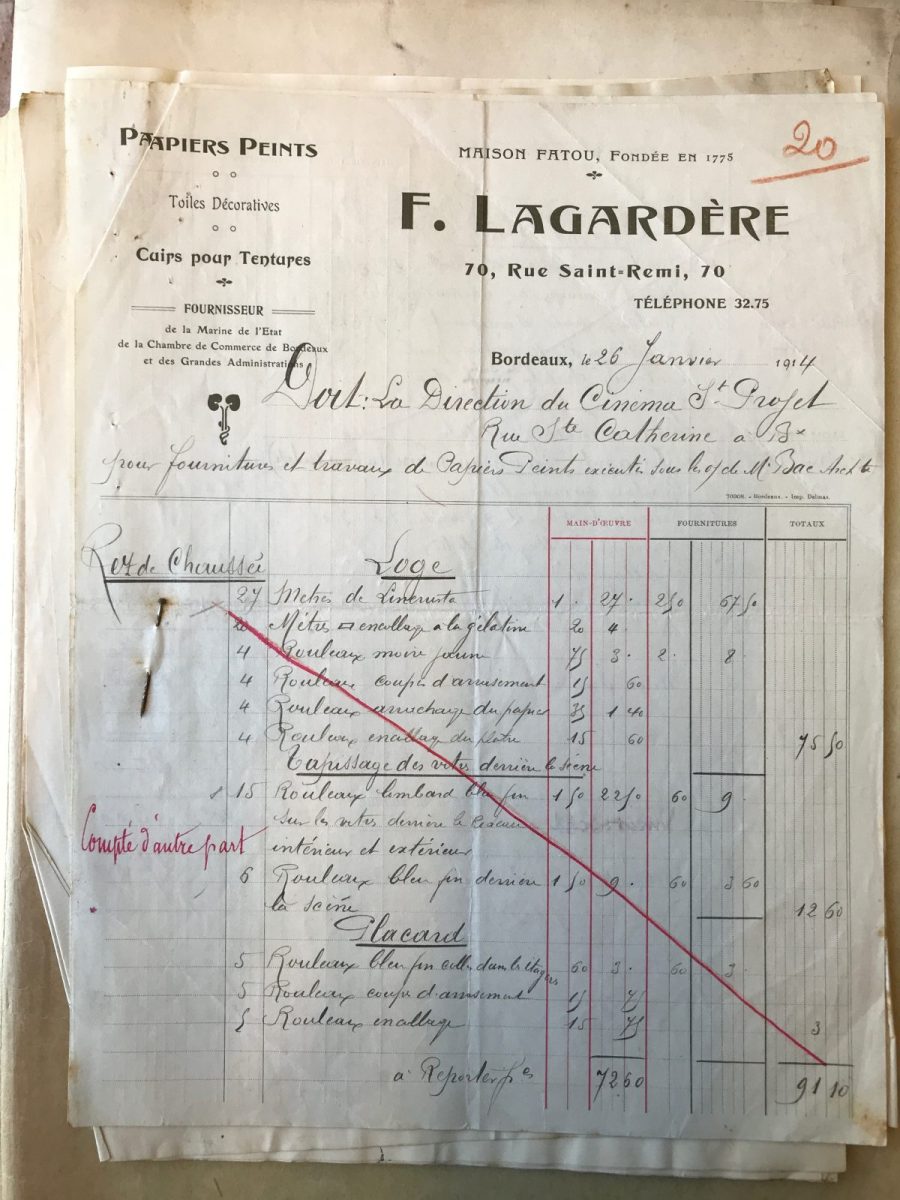 PAPIERS PEINTS
Toiles Décoratives
Cuirs pour Tentures
FOURNISSEUR
de la Marine de l'Etat
de la Chambre de Commerce de Bordeaux
et des Grandes Administrations
20
MAISON FATOU, FONDÉE EN 1775
F. LAGARDÈRE
70, Rue Saint-Remi, 70
TÉLÉPHONE 32.75
Bordeaux, le 26 Janvier 1914
Doit: La Direction du Cinema St Projet
Rue Ste Catherine a Bx
pour fournitures et travaux de Papiers Peints executés sous les de Mr Bac Archte
TODOS. - Bordeaux. - Imp. Delmas.
MAIN-D'ŒUVRE FOURNITURES TOTAUX
Rez de Chaussée Loge
27 Metres de Lincrusta 1 . 27 . 2 50 67 50
20 Mètres encollage a la gélatine 20 4 .
4 Rouleaux moire jaune 75 3 . 2 . 8 .
4 Rouleaux coupes d'arrasement 15 60
4 Rouleaux arrachage du papier 35 1 40
4 Rouleaux encollage du platre 15 60 75 50
Tapissage des vitres derrière la scène
15 Rouleaux lombard bleu fin 1 50 22 50 60 9 .
sur les vitres derrière le
intérieur et extérieur
Compté d'autre part
6 Rouleaux bleu fin derriere 1 50 9 . 60 3 60
la scène 12 60
Placard
5 Rouleaux bleu fin collés dans les étagères 60 3 . 60 3 .
5 Rouleaux coupes d'arrasement 15 75
5 Rouleaux encollage 15 75 3
a Reporter fcs 72 60 91 10